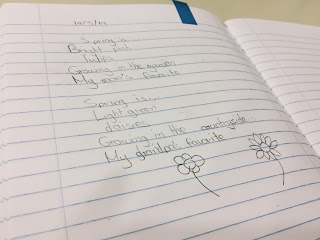 Spring is...
Bright pink
tulips
Growing in the garden
My mum's favorite
Spring is...
Light green
Growing in the countryside
My grandpa's favorite